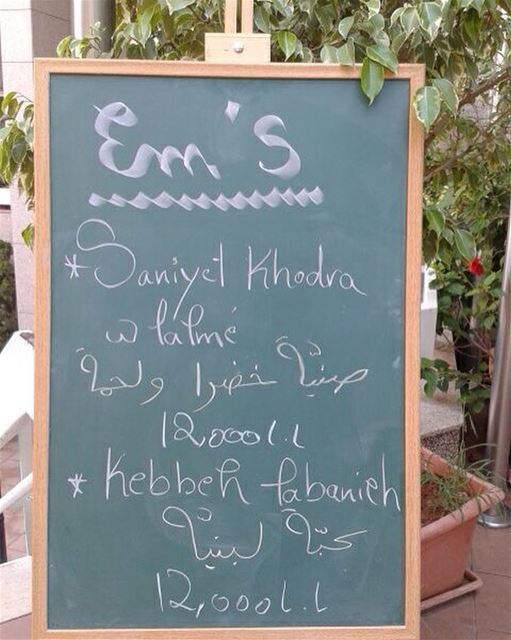 Em's
* Saniyet Khodra
w lalmé
صنيّة خضرا ولحمة
12,000 L.L
* Kebbeh labanieh
كبّة لبنيّة
12,000 L.L